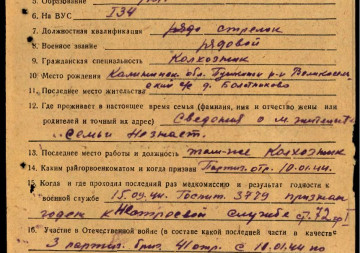 5. Образование
6. На ВУС 134
7. Должностная квалификация рядо стрелок
8. Военное звание рядовой
9. Гражданская специальность Колхозник
10. Место рождения Калининск. обл. Пушкин р-н
11. Последнее место жительства с/с д.
12. Где проживает в настоящее время семья (фамилия, имя и отчество жены или
родителей и точный их адрес) Сведения о м. жительст.
Семьи Незнает.
13. Последнее место работы и должность Колхозник
14. Каким райгорвоенкоматом и когда призван Партиз. отр. 10.01.44
15. Когда и где проходил последний раз медкомиссию и результат годности к
военной службе 15.09.44. Госпит. 3779 признан
годен к Нестроевой службе ст. 72
16. Участие в Отечественной войне (в составе какой последней части в качеств
3 партиз. бриг. 41 отр. с 10.01.44 по